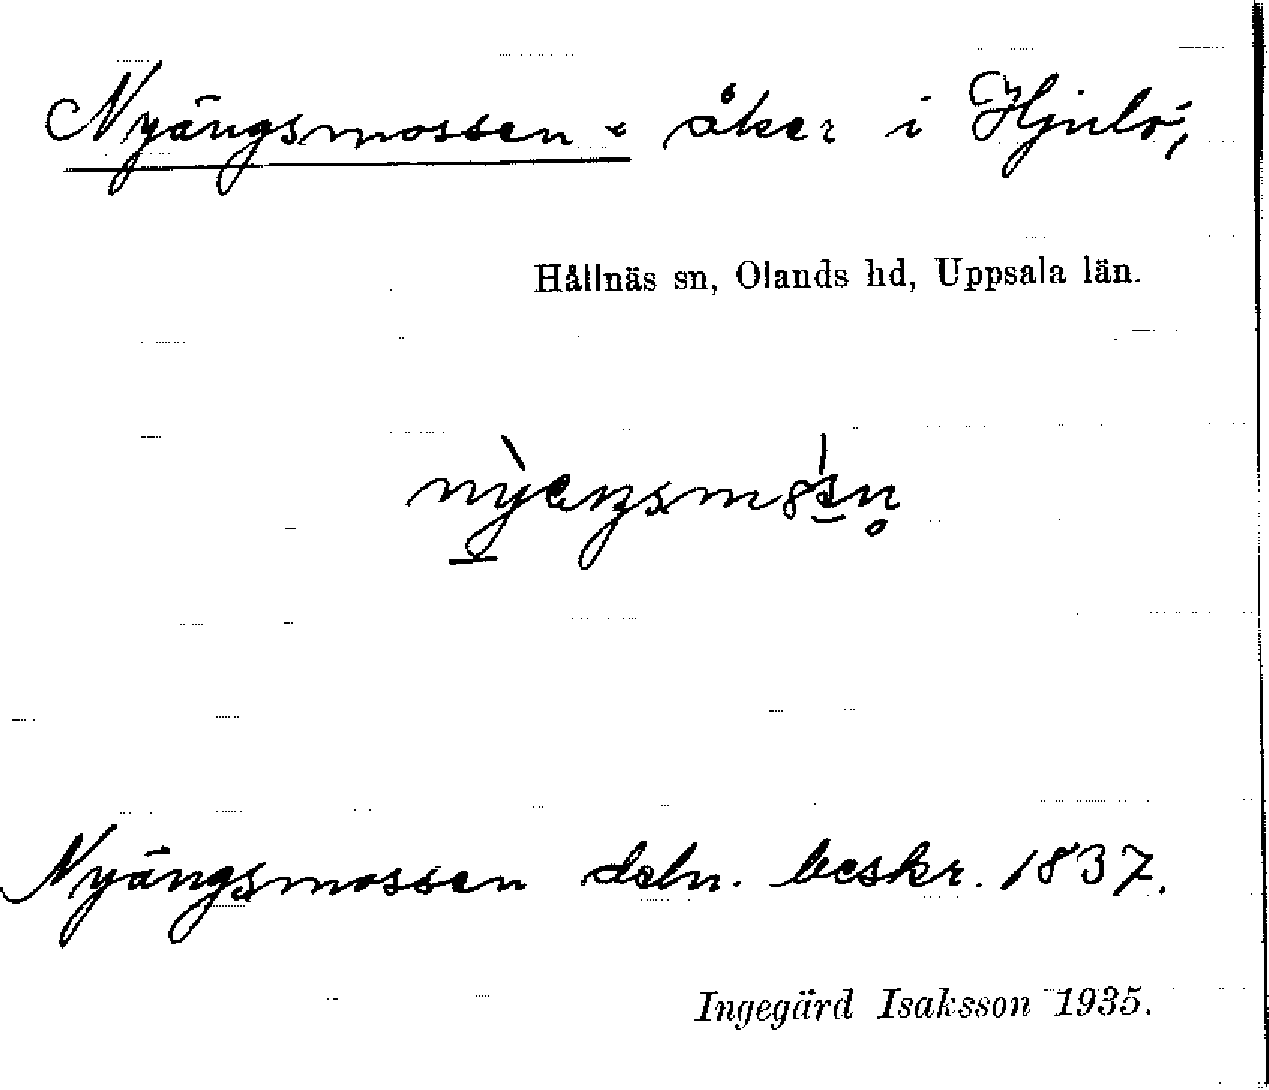 Nyängsmossen - åker i Hjulö,
Hållnäs sn, Olands hd, Uppsala län.
Nyängsmossen deln. beskr. 1837.
Ingegärd Isaksson 1935.